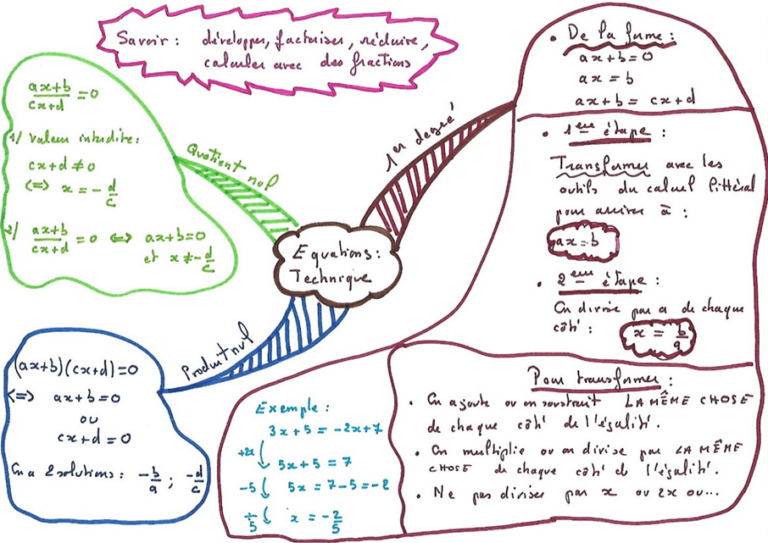 Savoir : développer, factoriser, réduire,
calculer avec des fractions
ax+b/cx+d = 0
1/ Valeur interdite:
cx+d ≠ 0
<=> x = -d/c
2/ ax+b/cx+d = 0 <=> ax+b=0
et x ≠ -d/c
Quotient nul
1er degré
Equations:
Technique
Produit nul
(ax+b)(cx+d)=0
<=> ax+b=0
ou
cx+d=0
On a 2 solutions : -b/a ; -d/c
• De la forme :
ax+b=0
ax = b
ax+b = cx+d
• 1ère étape :
Transformer avec les
outils du calcul littéral
pour arriver à :
ax=b
• 2ème étape :
On divise par a de chaque
côté : x = b/a
Pour transformer :
• On ajoute ou on soustrait LA MÊME CHOSE
de chaque côté de l'égalité.
• On multiplie ou on divise par LA MÊME
CHOSE de chaque côté de l'égalité.
• Ne pas diviser par x ou 2x ou...
Exemple :
3x+5 = -2x+7
+2x 5x+5 = 7
-5 5x = 7-5=-2
÷5 x = -2/5